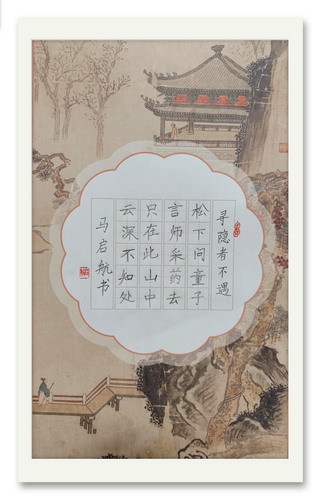 寻隐者不遇
松下问童子
言师采药去
只在此山中
云深不知处
马启航书